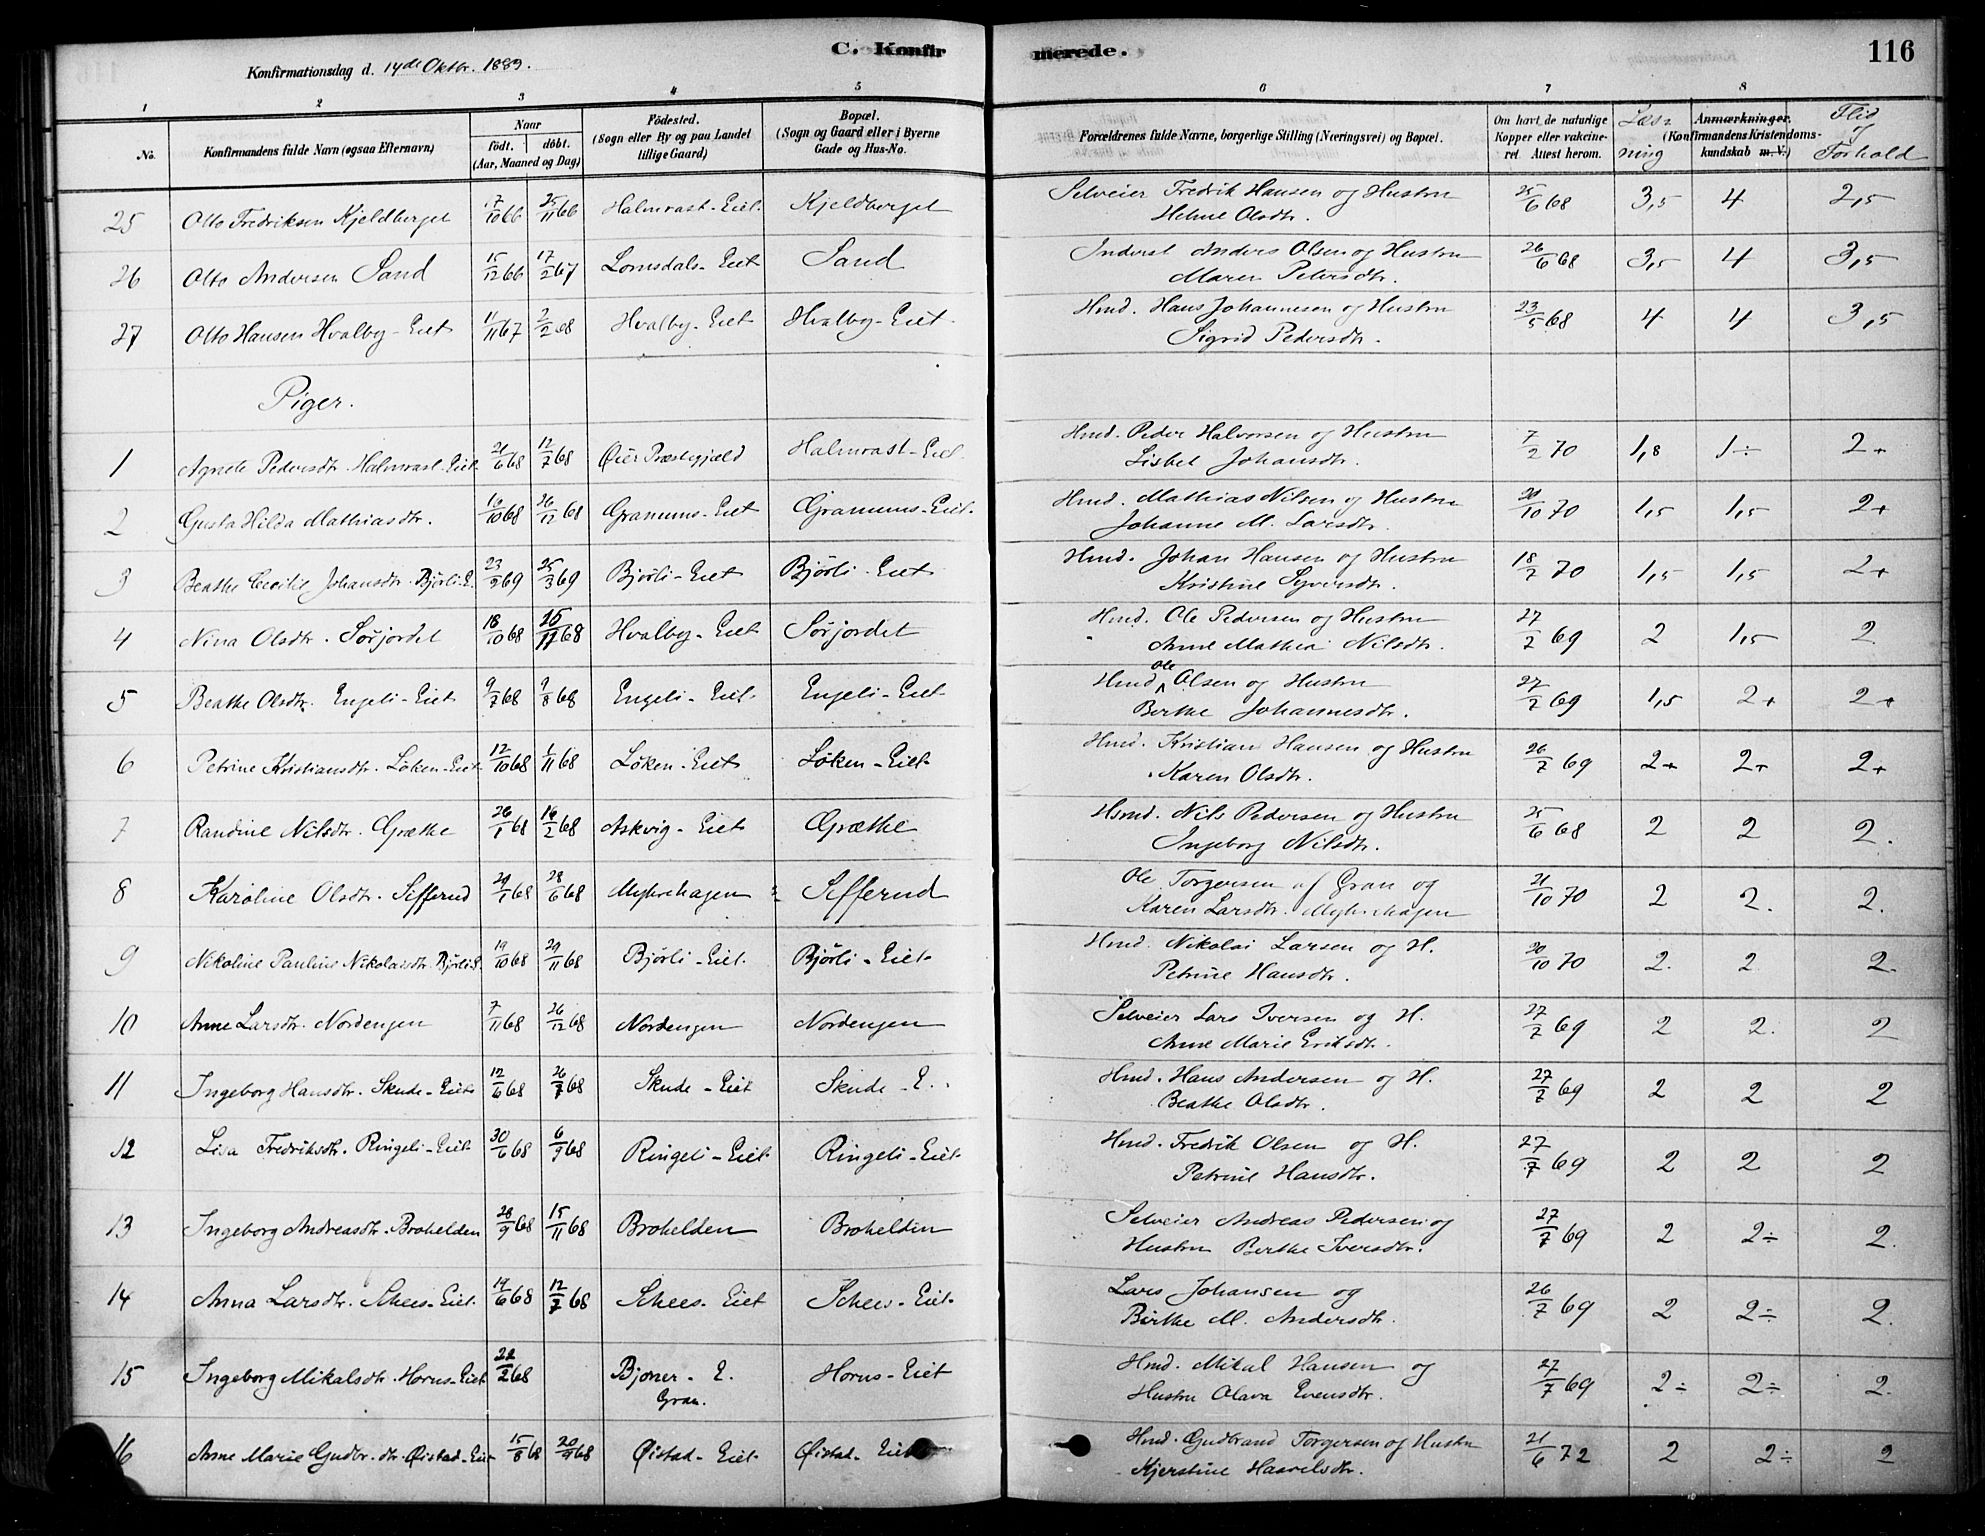 C. Konfirmerede.
116
Konfirmationsdag d. 14de Oktbr. 1883.
1 2 3 4 5 6 7 8
No. Konfirmandens fulde Navn (ogsaa Efternavn) Naar födt. döbt. (Aar, Maaned og Dag) Födested. (Sogn eller By og paa Landet tillige Gaard) Bopæl. (Sogn og Gaard eller i Byerne Gade og Hus-No. Forældrenes fulde Navne, borgerlige Stilling (Næringsvei) og Bopæl. Om havt de naturlige Kopper eller vakcineret. Attest herom. Læsning Anmærkninger. (Konfirmandens Kristendomskundskab m.V.) Flid og Forhold
25 Otto Fredriksen Kjeldberget 17/10 66 25/11 66 Halmrast-Eiet. Kjeldberget Selveier Fredrik Hansen og Hustru Helene Olsdtr. 25/6 68 3,5 4 2,5
26 Otto Andersen Sand 15/12 66 17/2 67 Lomsdals-Eiet Sand Inderst Anders Olsen og Hustru Maren Petersdtr. 26/6 68 3,5 4 3,5
27 Otto Hansen Hvalby-Eiet 11/11 67 2/2 68 Hvalby-Eiet Hvalby-Eiet Hmd. Hans Johannesen og Hustru Sigrid Pedersdtr. 23/5 68 4 4 3,5
Piger.
1 Agnete Pedersdtr. Halmrast-Eiet. 21/6 68 12/7 68 Øier Præstegjæld Halmrast-Eiet. Hmd. Peder Halvorsen og Hustru Lisbet Johansdtr. 7/2 70 1,8 1÷ 2+
2 Gusta Hilda Mathiasdtr. 16/10 68 26/12 68 Gramums-Eiet Gramums-Eiet. Hmd. Mathias Nilsen og Hustru Johanne M. Larsdtr. 20/10 70 1,5 1,5 2+
3 Beathe Cecilie Johansdtr. Bjørli-E. 23/2 69 25/3 69 Bjørli-Eiet Bjørli-Eiet Hmd. Johan Hansen og Hustru Kristine Syversdtr. 18/7 70 1,5 1,5 2+
4 Nina Olsdtr. Sørjordet 18/10 68 15/11 68 Hvalby-Eiet Sørjordet Hmd. Ole Pedersen og Hustru Anne Mathea Nilsdtr. 27/2 69 2 1,5 2
5 Beathe Olsdtr. Engeli-Eiet 9/7 68 9/8 68 Engeli-Eiet Engeli-Eiet Hmd Ole Olsen og Hustru Berthe Johannesdtr. 27/2 69 1,5 2+ 2+
6 Petrine Kristiansdtr. Løken-Eiet. 12/10 68 1/11 68 Løken-Eiet Løken-Eiet Hmd. Kristian Hansen og Hustru Karen Olsdtr. 26/7 69 2+ 2+ 2+
7 Randine Nilsdtr. Græthe 26/1 68 16/2 68 Askvig-Eiet Græthe Hsmd. Nils Pedersen og Hustru Ingeborg Nilsdtr. 25/6 68 2 2 2.
8 Karoline Olsdtr. Sefferud 29/1 68 28/6 68 Myhrehagen Sefferud Ole Torgersen af Gran og Karen Larsdtr. Myhrehagen 21/10 70 2 2. 2.
9 Nikoline Pauline Nikolaisdtr. Bjørli E. 19/10 68 29/11 68 Bjørli-Eiet. Bjørli-Eiet Hmd. Nikolai Larsen og H. Petrine Hansdtr. 20/10 70 2. 2 2.
10 Anne Larsdtr. Nordengen 7/11 68 26/12 68 Nordengen Nordengen Selveier Lars Iversen og H. Anne Marie Eriksdtr. 27/7 69 2 2. 2
11 Ingeborg Hansdtr. Skude-Eiet 12/6 68 26/7 68 Skude-Eiet Skude-E. Hmd. Hans Andersen og H. Beathe Olsdtr. 27/7 69 2 2 2
12 Lisa Fredriksdtr. Ringeli-Eiet 30/6 68 6/9 68 Ringeli-Eiet Ringeli-Eiet Hmd. Fredrik Olsen og H. Petrine Hansdtr. 27/7 69 2 2 2
13 Ingeborg Andreasdtr. Brohelden 28/9 68 15/11 68 Brohelden Brohelden Selveier Andreas Pedersen og Hustru Berthe Iversdtr. 27/7 69 2 2÷ 2.
14 Anna Larsdtr. Schees-Eiet. 14/6 68 12/7 68 Schees-Eiet Schees-Eiet Lars Johansen og Birthe M. Andersdtr. 26/7 69 2 2÷ 2.
15 Ingeborg Mikalsdtr. Horns-Eiet 22/2 68 Bjoner-E. Gran. Horns-Eiet Hmd. Mikal Hansen og Hustru Olava Evensdtr. 27/7 69 2÷ 2÷ 2.
16 Anne Marie Gudbr.dtr. Øistad-Eiet 15/8 68 20/9 68 Øistad-Eiet Øistad-Eiet Hmd. Gudbrand Torgersen og Hustru Kjerstine Haavelsdtr. 21/6 72 2 2÷ 2